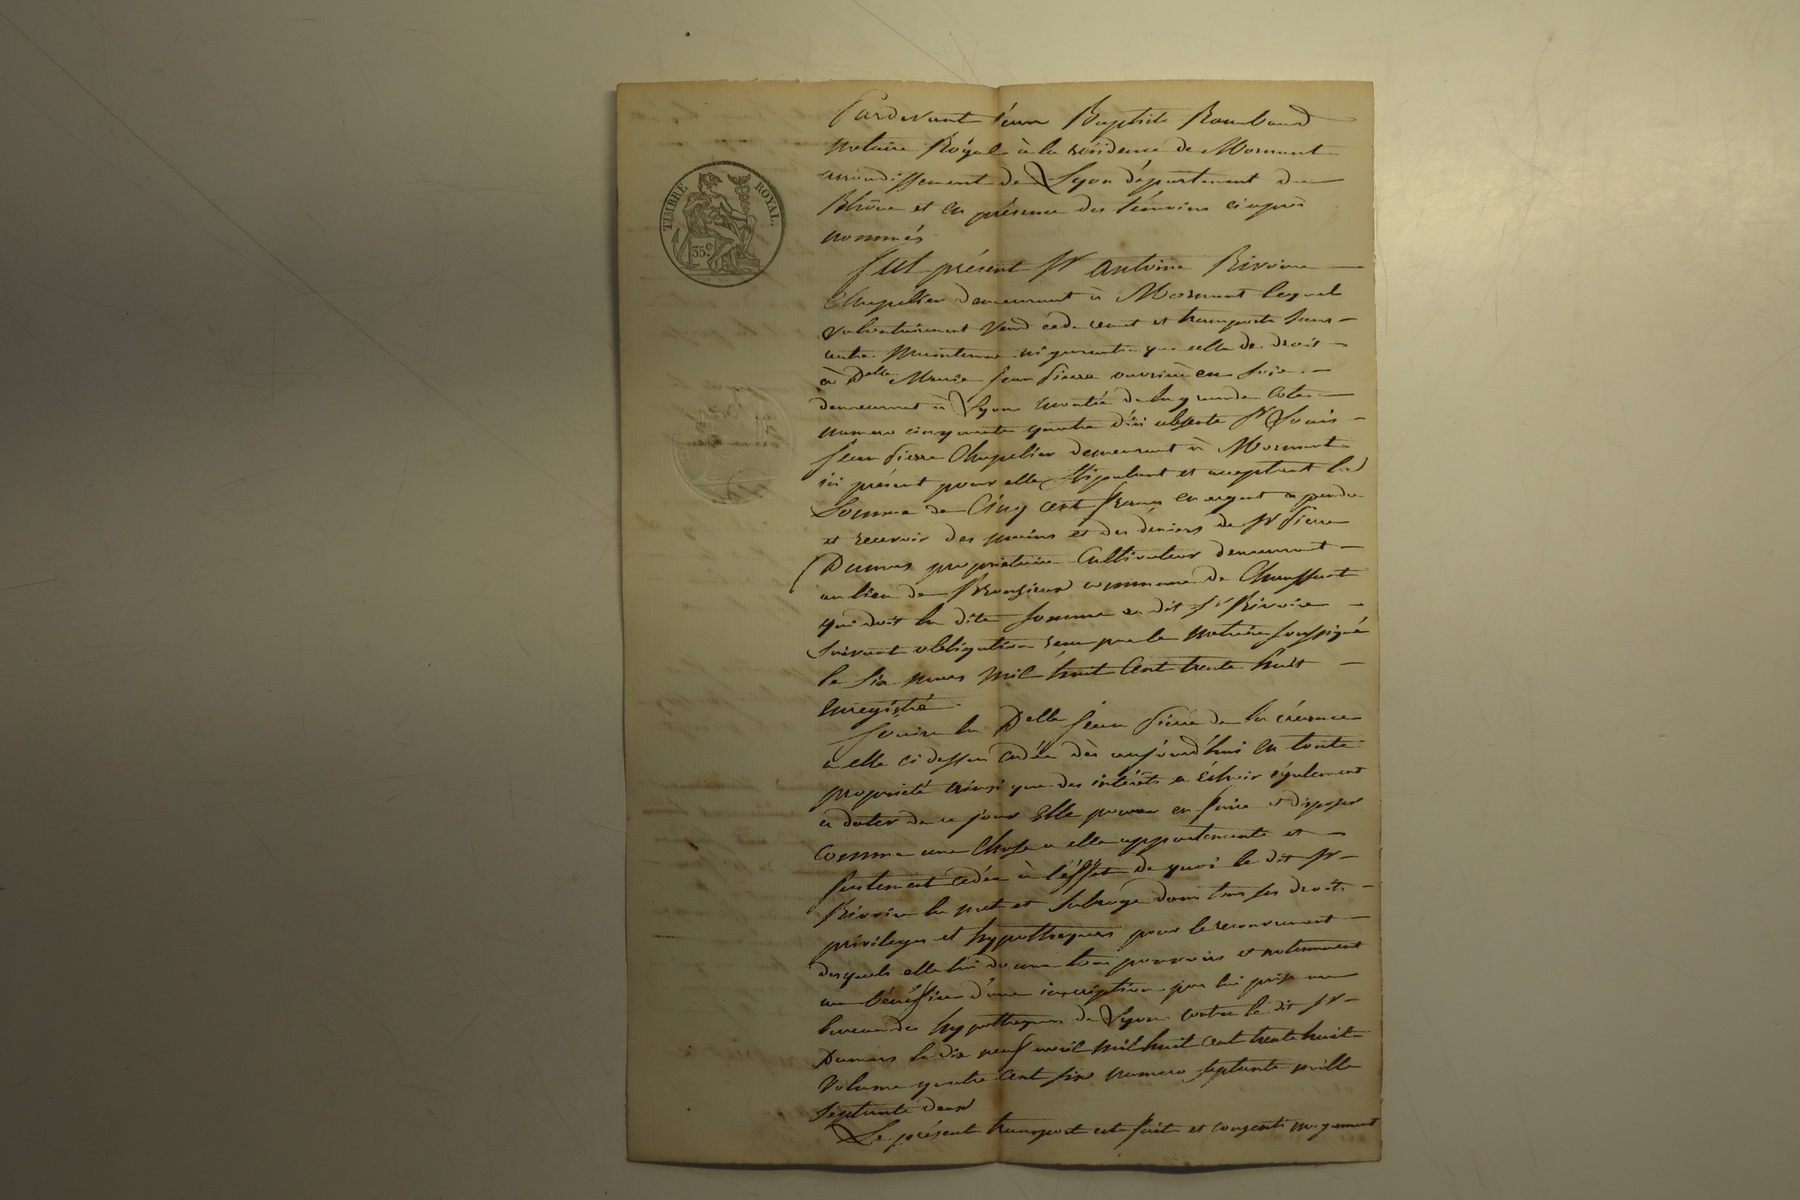 TIMBRE ROYAL.
35 c.
Pardevant Jean Baptiste Rambaud
Notaire Royal à la résidence de Mornant
arrondissement de Lyon département du
Rhône et en présence des témoins ci après
nommés
fut présent Sr Antoine Rivoire
Chapellier demeurant à Mornant lequel
volontairement vend cede remet et transporte sans
autre maintenue ni garantie que celle de droit
à Delle Marie Jean Pierre ouvrière en soie
demeurant à Lyon montée de la grande Cote
numero cinquante quatre d'ici absente Sr Louis
Jean Pierre Chapelier demeurant à Mornant
ici présent pour elle stipulant et acceptant la
Somme de Cinq cent francs en argent a prendre
et recevoir des mains et des deniers de Sr Pierre
Dumas propriétaire Cultivateur demeurant
au lieu de commune de Chaussant
qui doit la dite somme au dit Sr Rivoire
suivant obligation reçue par le Notaire soussigné
le six mars mil huit cent trente huit
enregistré.
Jouira la Delle Jean Pierre de la créance
a elle ci dessus cédée dès aujourd'hui en toute
propriété ainsi que des intérêts a échoir également
à dater de ce jour Elle pourra en faire et disposer
comme une chose a elle appartenante et
justement cédée à l'effet de quoi le dit Sr
Rivoire la met et subroge dans tous ses droits
privileges et hypotheques pour le recouvrement
desquels elle lui donne tous pouvoirs et notamment
au bénéfice d'une inscription par lui prise au
bureau des hypotheques de Lyon contre le dit Sr
Dumas le dix neuf avril mil huit cent trente huit
Volume quatre cent six numero septante mille
septante deux
Le présent transport est fait et consenti moyennant